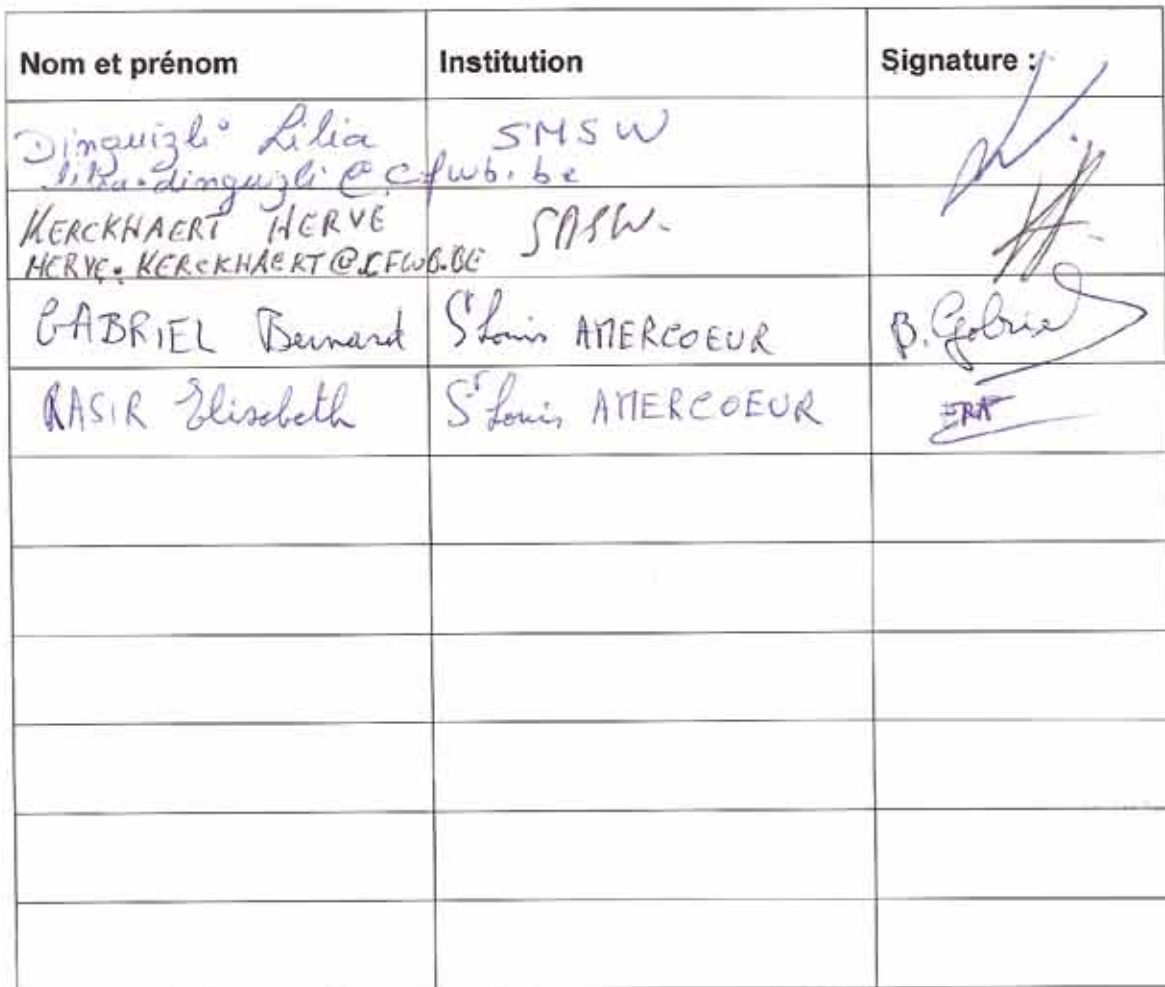 Nom et prénom Institution Signature :
Dinguizli Lilia SMSW
lilia.dinguizli@cfwb.be
KERCKHAERT HERVE SASW.
HERVE.KERCKHAERT@CFWB.BE
GABRIEL Bernard St Louis AMERCOEUR B. Gabriel
RASIR Elisabeth St Louis AMERCOEUR